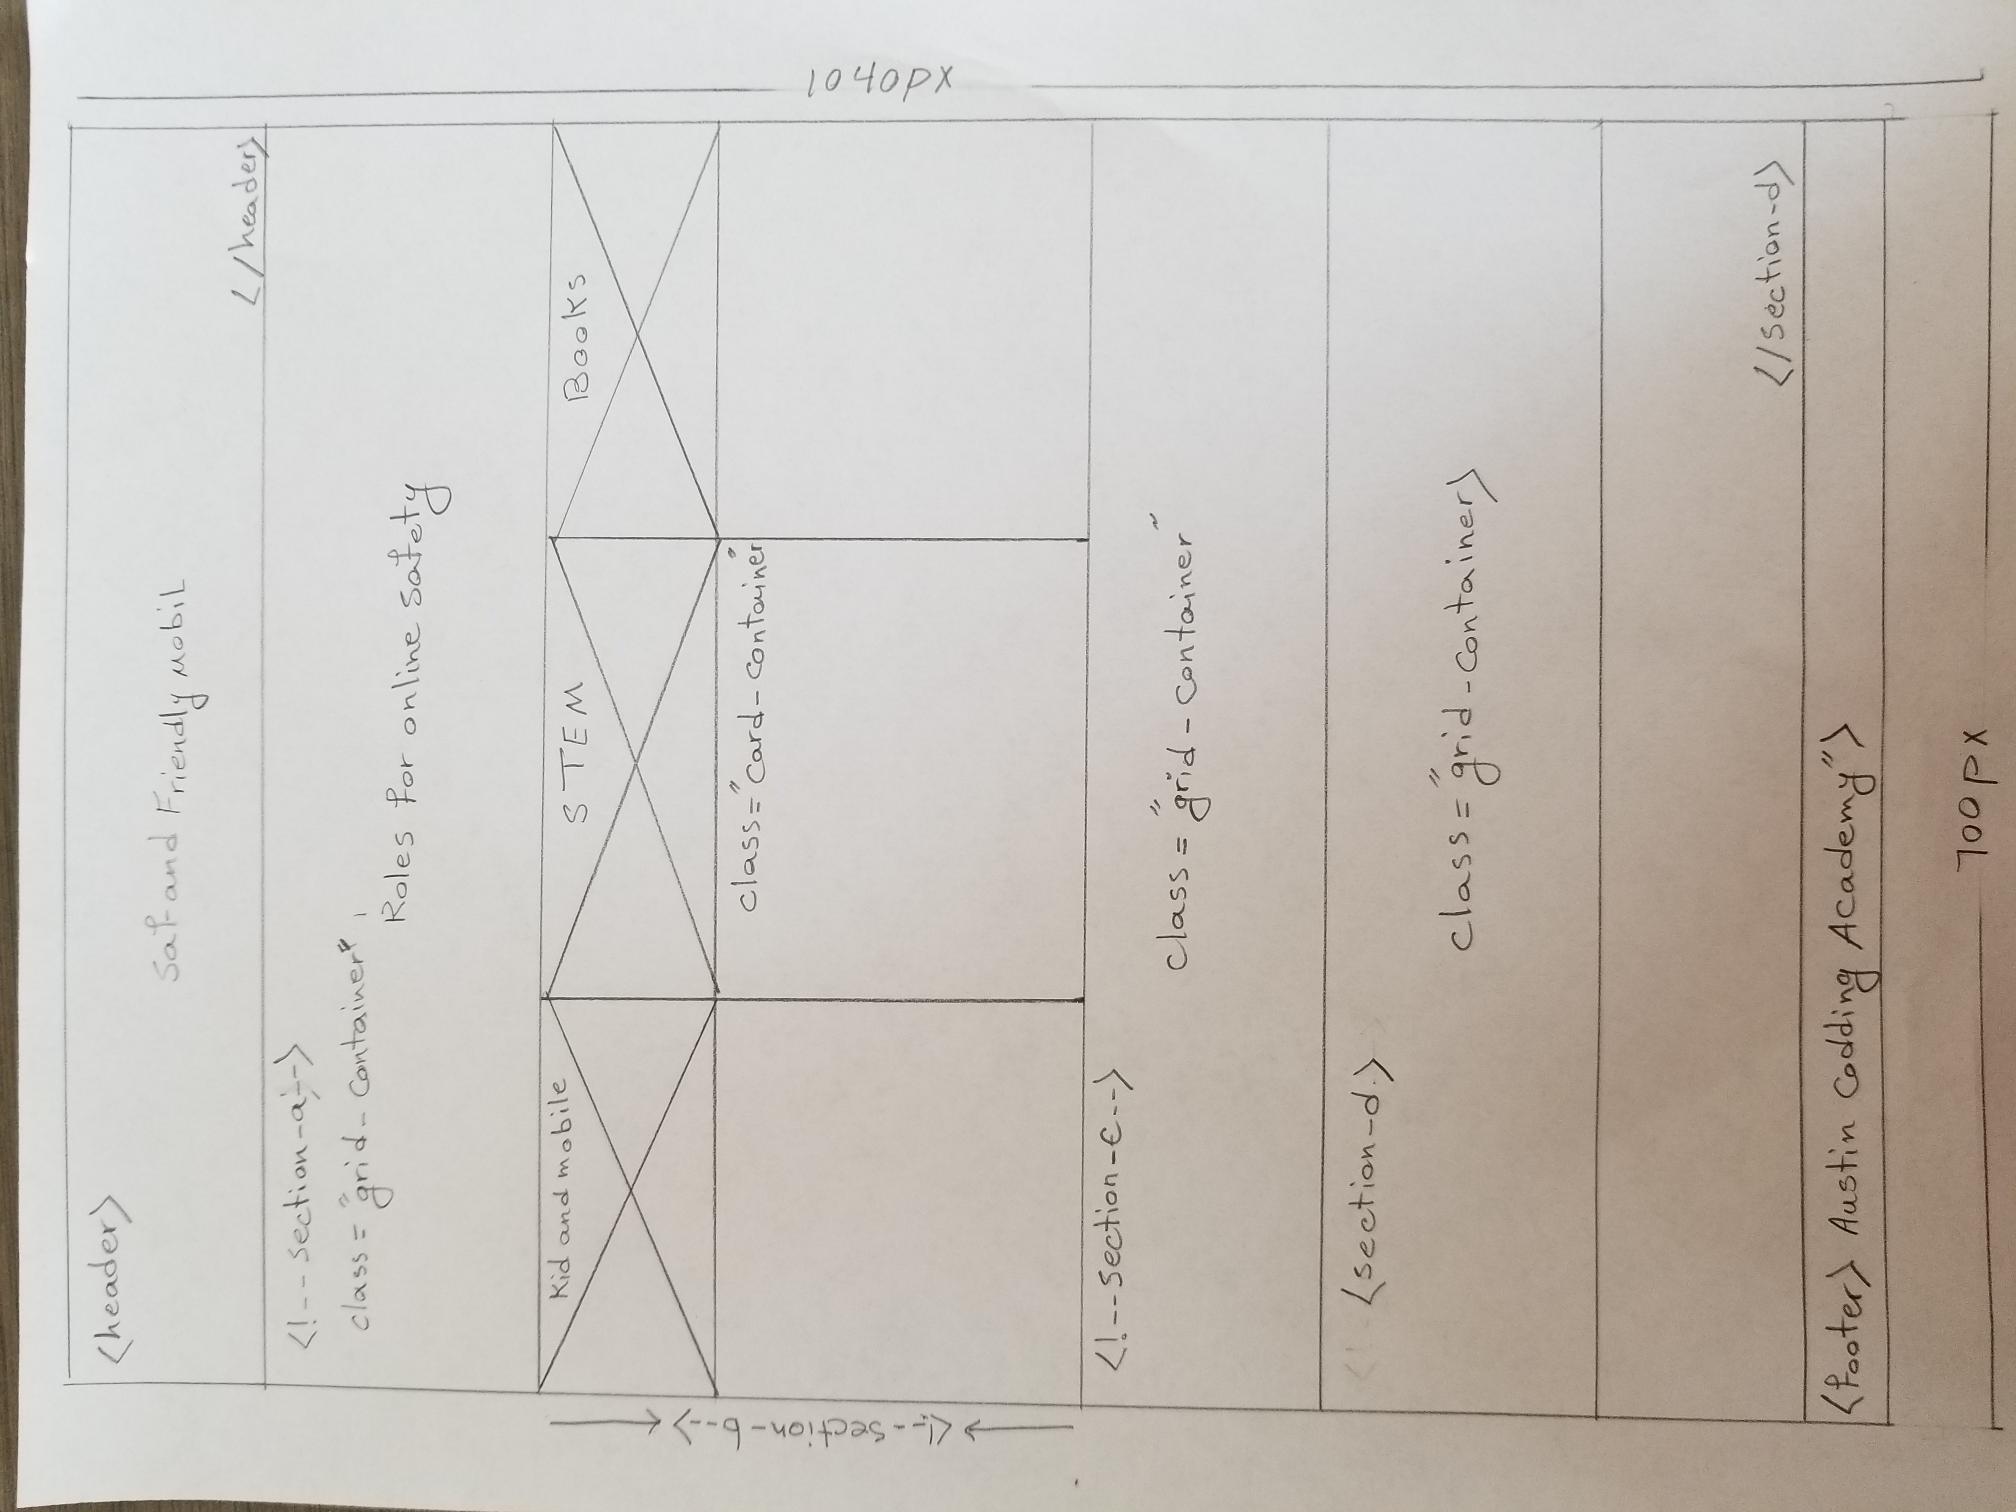 <header>
Saf and Friendly mobil
</header>
<!-- section-a -->
class = "grid-container"
Roles for online safety
Kid and mobile
STEM
Books
<!--section-b-->
class="card-container"
1040px
<!--section-c-->
class = "grid-container"
<section-d>
class = "grid-container>
</section-d>
<footer> Austin Codding Academy">
700px